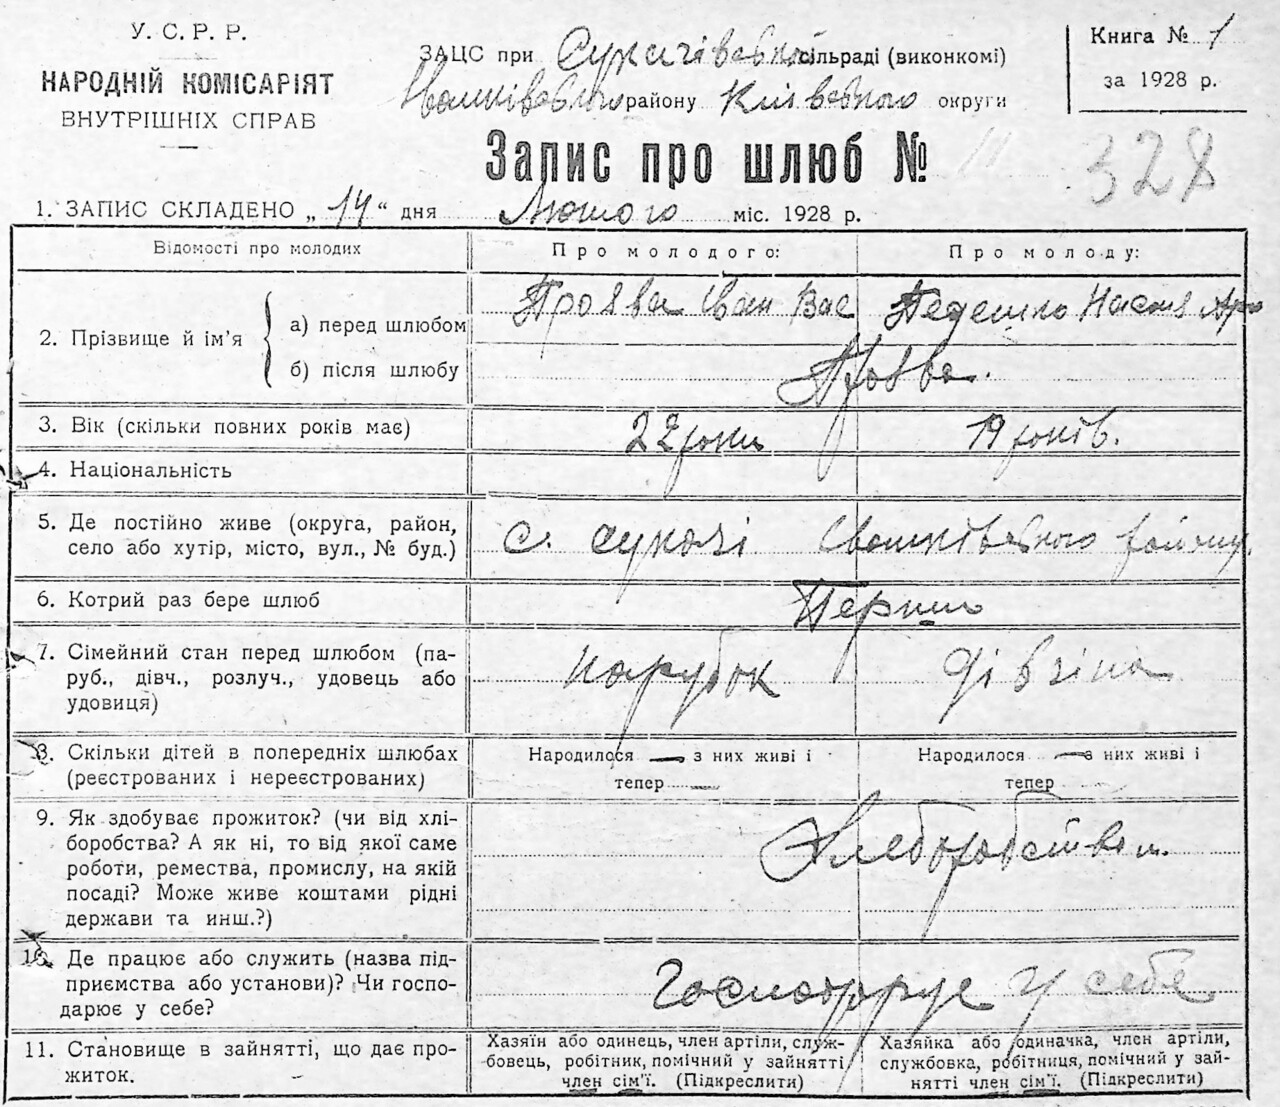 У. С. Р. Р.
НАРОДНІЙ КОМІСАРІЯТ
ВНУТРІШНІХ СПРАВ
ЗАЦС при Сукачівській сільраді (виконкомі)
Іванківського району Київського округи
Книга № 1
за 1928 р.
Запис про шлюб №
328
1. ЗАПИС СКЛАДЕНО „ 14 " дня Лютого міс. 1928 р.
Відомості про молодих
Про молодого:
Про молоду:
2. Прізвище й ім'я
а) перед шлюбом
Іван Вас
б) після шлюбу
3. Вік (скільки повних років має)
22 роки
19 років.
4. Національність
5. Де постійно живе (округа, район,
село або хутір, місто, вул., № буд.)
с. Сукачі Іванківського району.
6. Котрий раз бере шлюб
Перший
7. Сімейний стан перед шлюбом (па-
руб., дівч., розлуч., удовець або
удовиця)
парубок
дівчіна
8. Скільки дітей в попередніх шлюбах
(реєстрованих і нереєстрованих)
Народилося — з них живі і
тепер
Народилося — з них живі і
тепер
9. Як здобуває прожиток? (чи від хлі-
боробства? А як ні, то від якої саме
роботи, ремества, промислу, на якій
посаді? Може живе коштами рідні
держави та инш.?)
10. Де працює або служить (назва під-
приємства або установи)? Чи госпо-
дарює у себе?
у себе
11. Становище в зайнятті, що дає про-
житок.
Хазяїн або одинець, член артіли, служ-
бовець, робітник, помічний у зайнятті
член сім'ї. (Підкреслити)
Хазяйка або одиначка, член артіли,
службовка, робітниця, помічний у зай-
нятті член сім'ї. (Підкреслити)